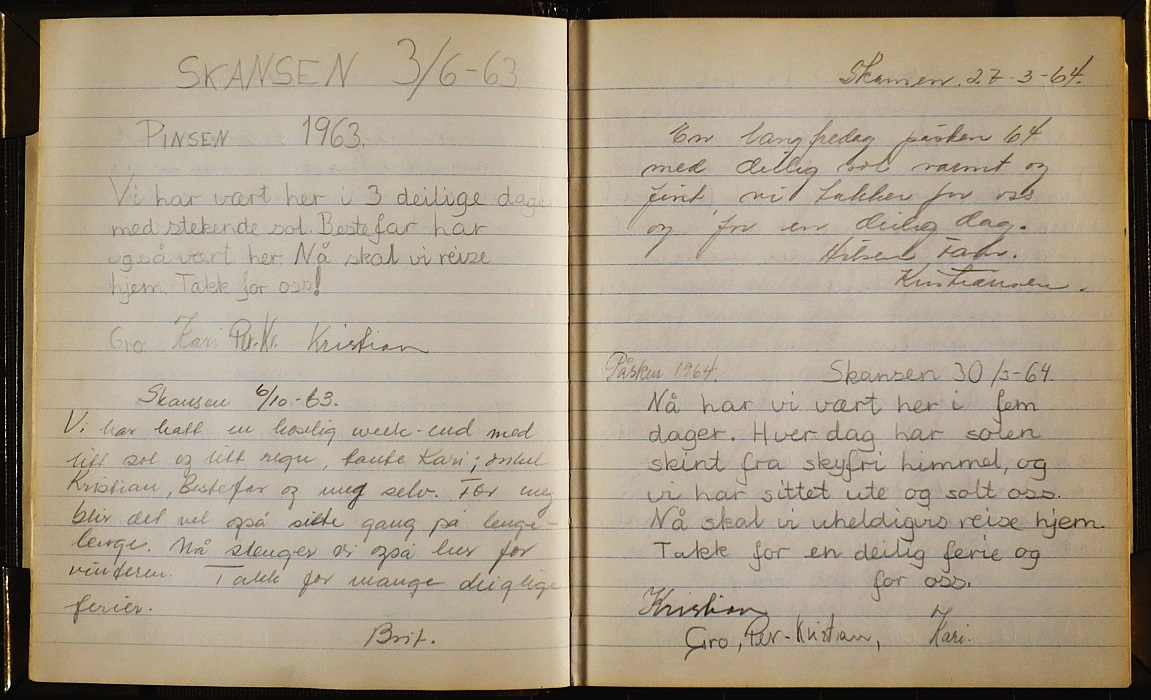 SKANSEN 3/6-63
PINSEN 1963.
Vi har vært her i 3 deilige dage
med stekende sol. Bestefar har
også vært her. Nå skal vi reise
hjem. Takk for oss!
Gro Kari Per-Kr. Kristian
Skansen 6/10-63.
Vi har hatt en koselig week-end med
litt sol og litt regn, tante Kari; onkel
Kristian, Bestefar og meg selv. For meg
blir det vel også siste gang på lenge-
lenge. Nå stenger vi også her for
vinteren. Takk for mange deiglige
ferier.
Brit.
Skansen. 27-3-64.
En langfredag påsken 64
med deilig sol varmt og
fint, vi takker for oss
og for en deilig dag.
Hilsen Fam.
Kristiansen.
Påsken 1964. Skansen 30/3-64.
Nå har vi vært her i fem
dager. Hver dag har solen
skint fra skyfri himmel, og
vi har sittet ute og solt oss.
Nå skal vi uheldigvis reise hjem.
Takk for en deilig ferie og
for oss.
Kristian
Gro, Per-Kristian, Kari.